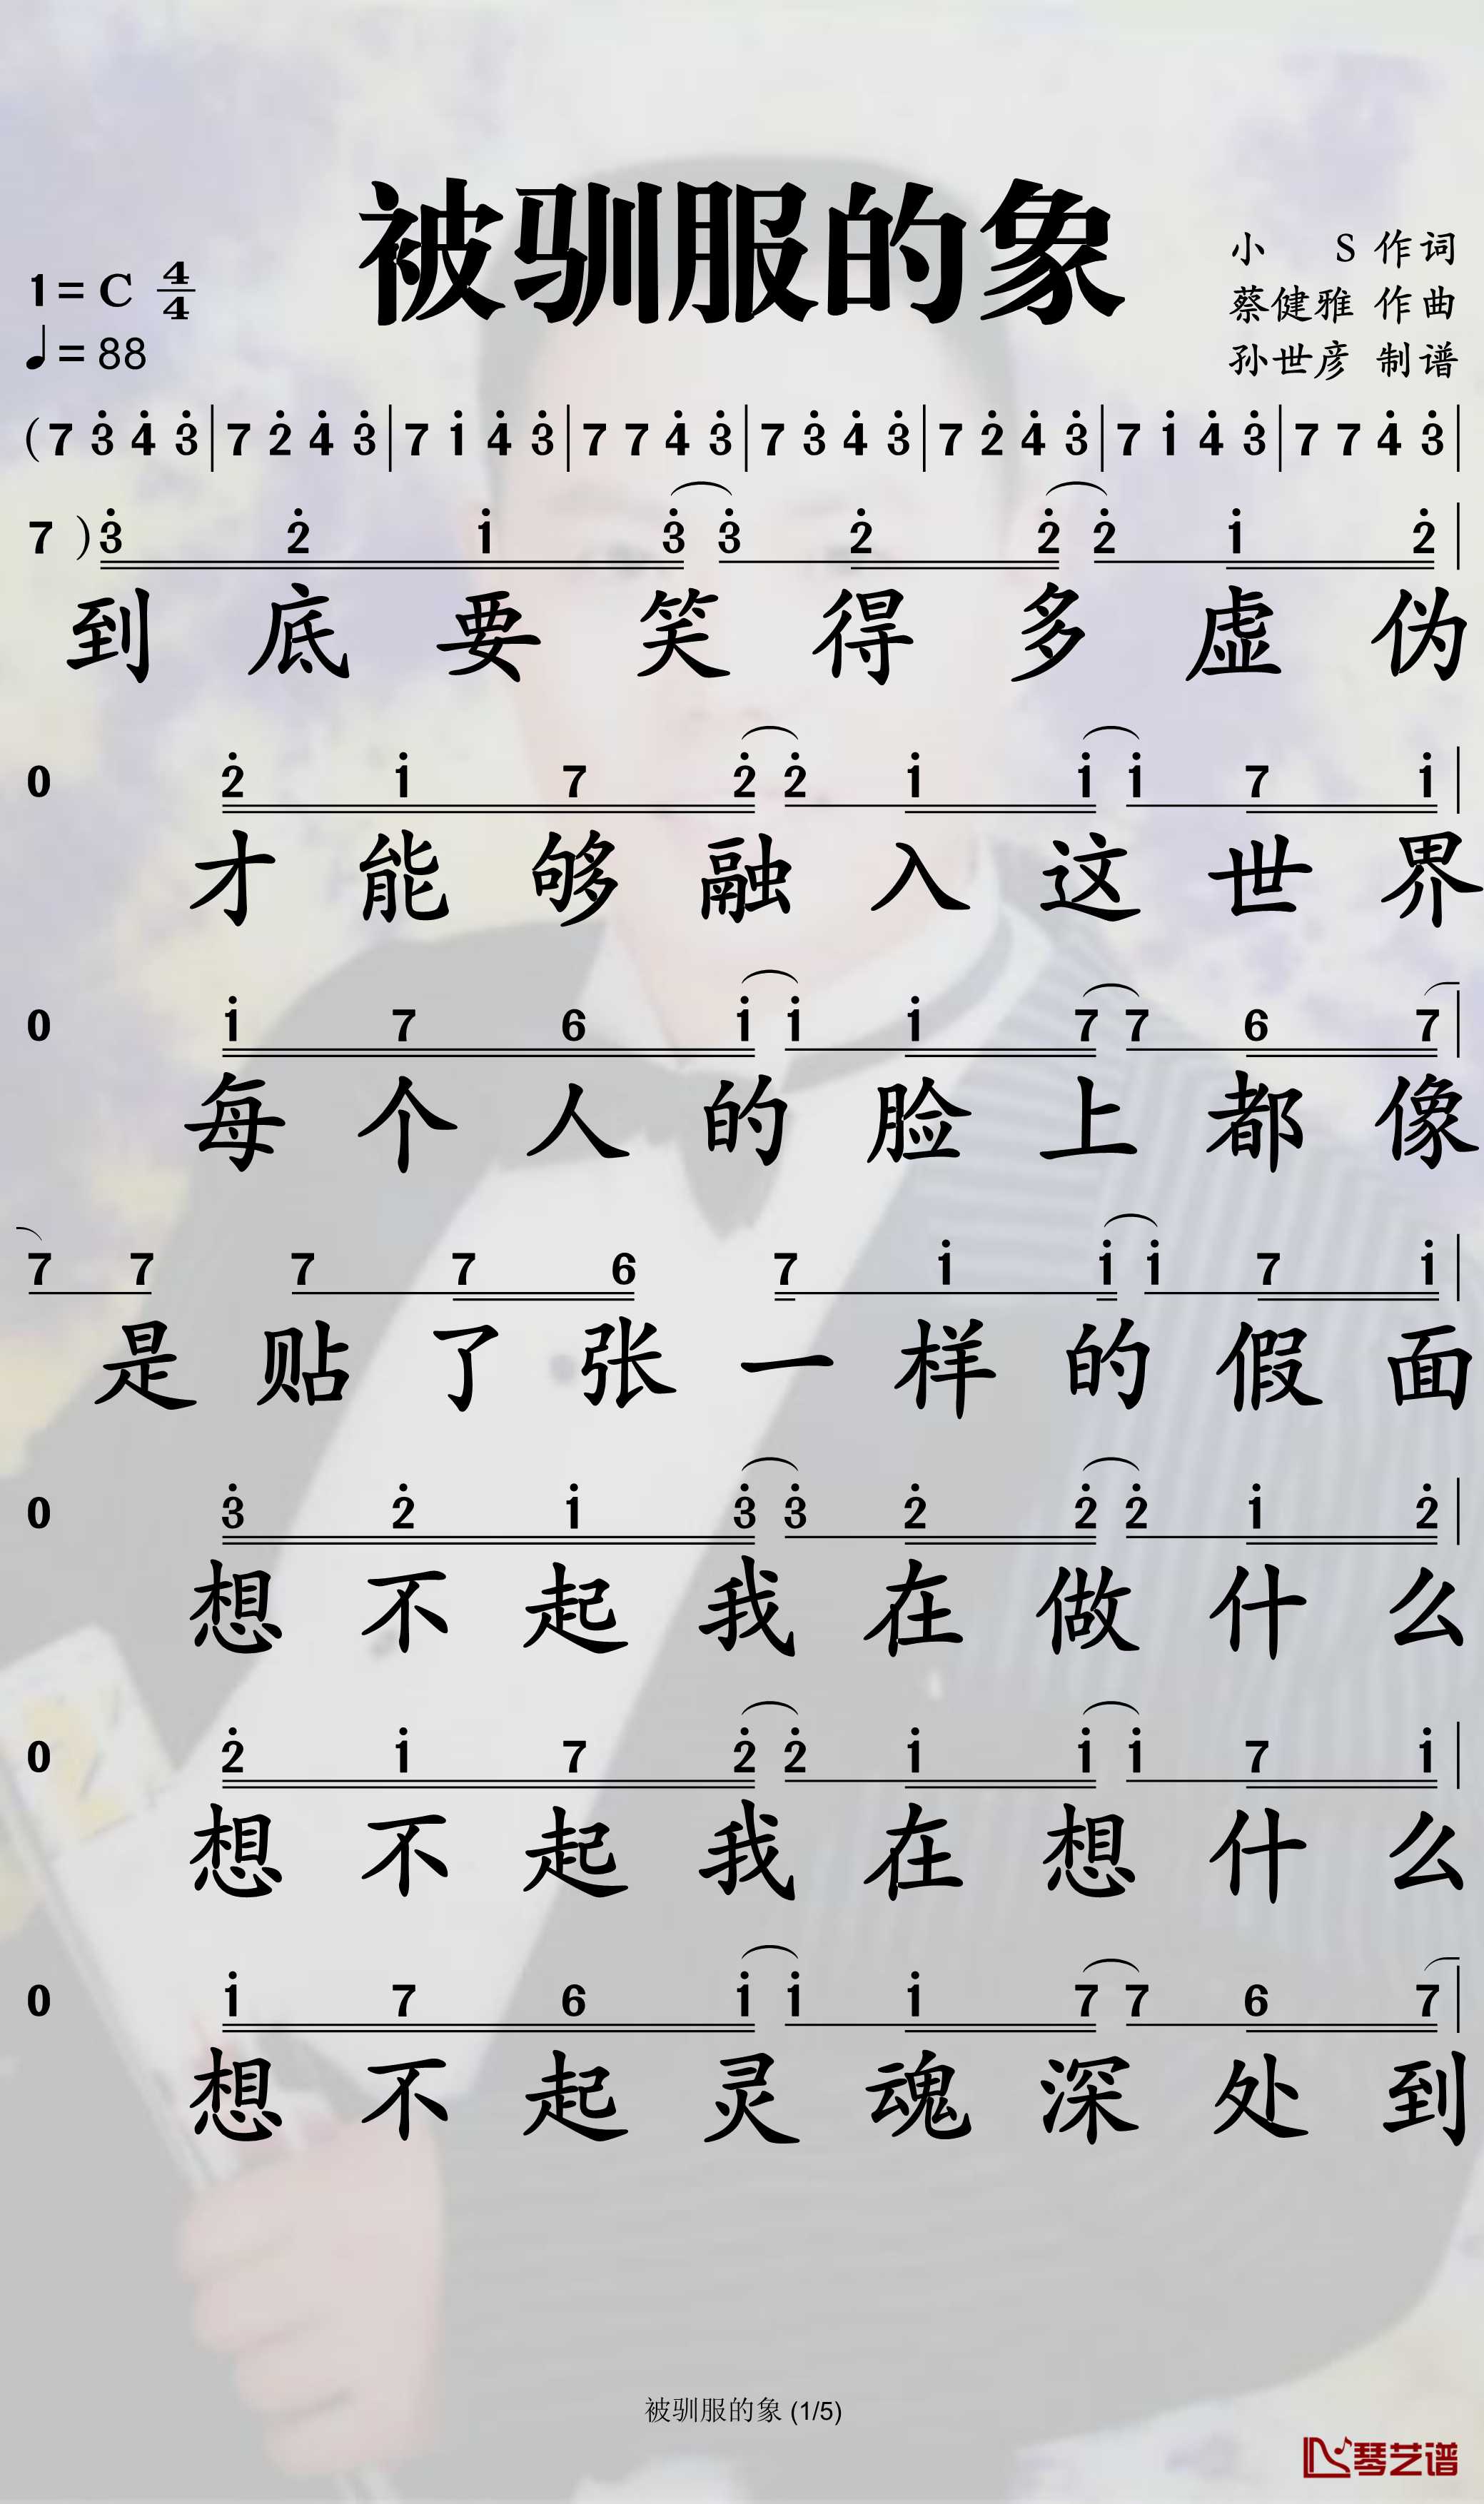 被驯服的象
小 S 作词
1=C 4/4
蔡健雅 作曲
♩=88
孙世彦 制谱
(7 3̇ 4̇ 3̇ | 7 2̇ 4̇ 3̇ | 7 1̇ 4̇ 3̇ | 7 7 4̇ 3̇ | 7 3̇ 4̇ 3̇ | 7 2̇ 4̇ 3̇ | 7 1̇ 4̇ 3̇ | 7 7 4̇ 3̇ |
7 ) 3̇ 2̇ 1̇ 3̇ 3̇ 2̇ 2̇ 2̇ 1̇ 2̇ |
到 底 要 笑 得 多 虚 伪
0 2̇ 1̇ 7 2̇ 2̇ 1̇ 1̇ 1̇ 7 1̇ |
才 能 够 融 入 这 世 界
0 1̇ 7 6 1̇ 1̇ 1̇ 7 7 6 7 |
每 个 人 的 脸 上 都 像
7 7 7 7 6 7 1̇ 1̇ 1̇ 7 1̇ |
是 贴 了 张 一 样 的 假 面
0 3̇ 2̇ 1̇ 3̇ 3̇ 2̇ 2̇ 2̇ 1̇ 2̇ |
想 不 起 我 在 做 什 么
0 2̇ 1̇ 7 2̇ 2̇ 1̇ 1̇ 1̇ 7 1̇ |
想 不 起 我 在 想 什 么
0 1̇ 7 6 1̇ 1̇ 1̇ 7 7 6 7 |
想 不 起 灵 魂 深 处 到
被驯服的象 (1/5)
琴艺谱